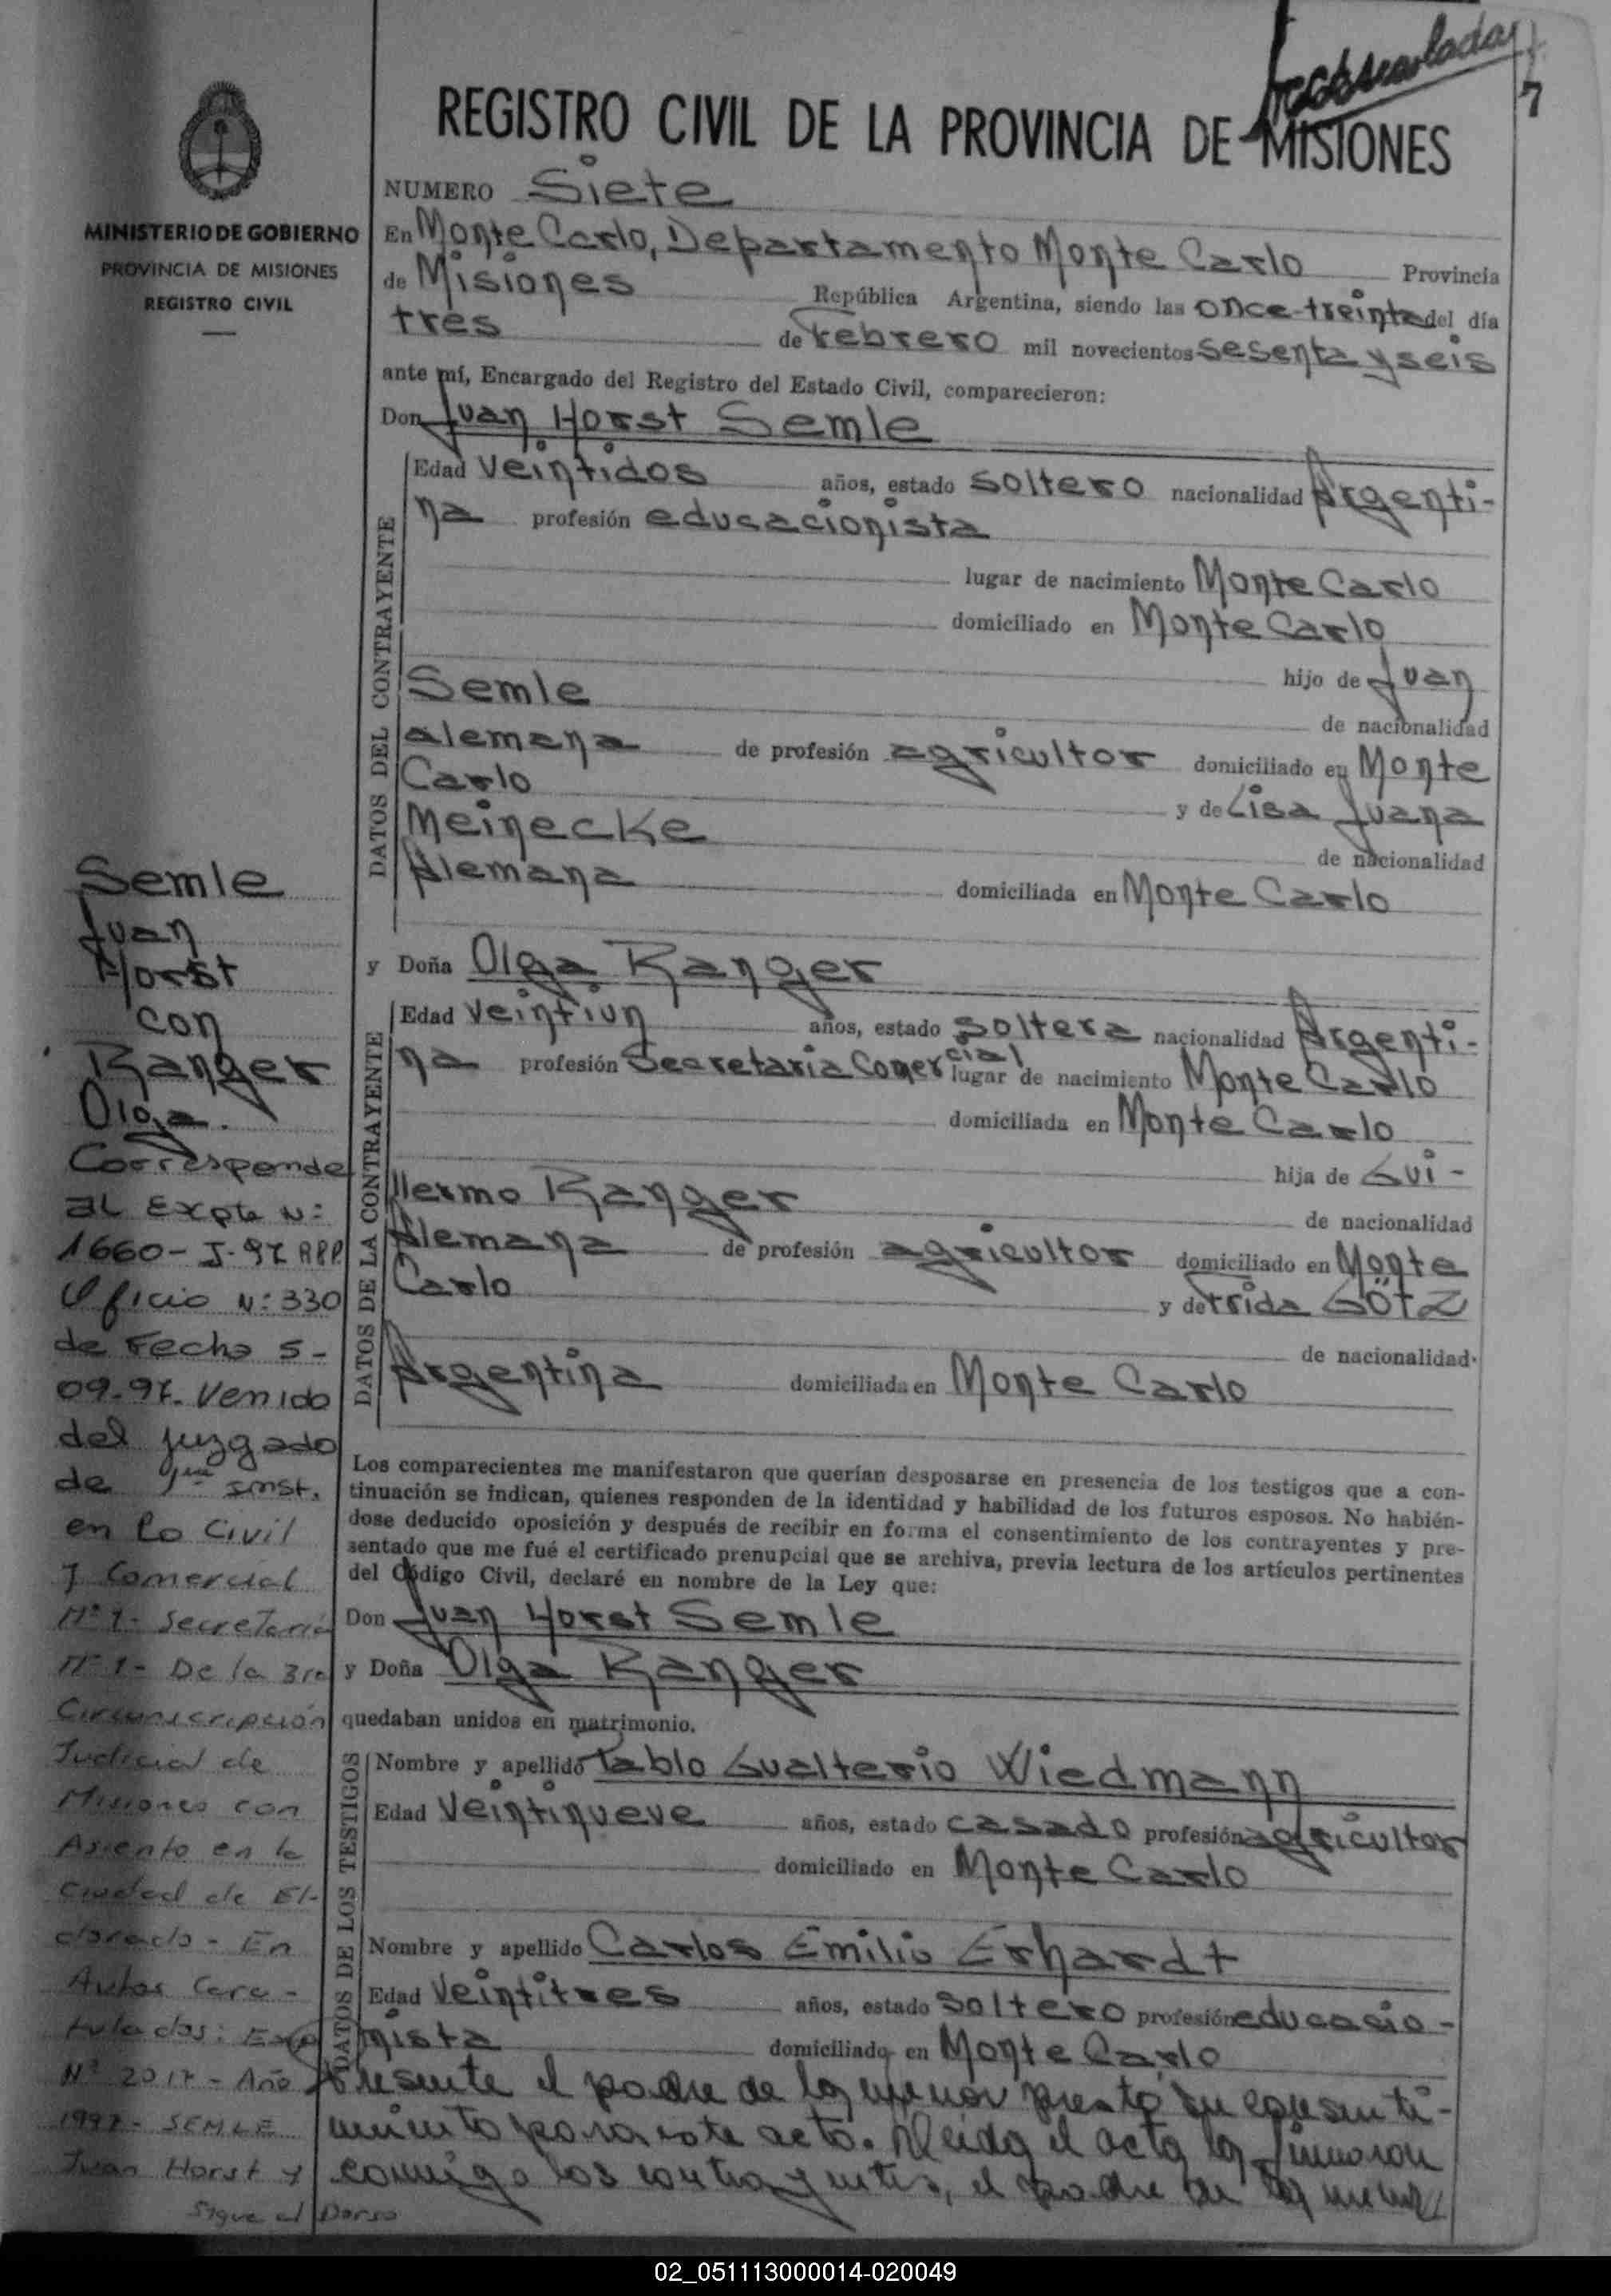 7
REGISTRO CIVIL DE LA PROVINCIA DE MISIONES
MINISTERIO DE GOBIERNO
PROVINCIA DE MISIONES
REGISTRO CIVIL
NUMERO Siete
En Monte Carlo, Departamento Monte Carlo Provincia
de Misiones República Argentina, siendo las once treinta del día
tres de Febrero mil novecientos sesenta y seis
ante mí, Encargado del Registro del Estado Civil, comparecieron:
Don Juan Horst Semle
DATOS DEL CONTRAYENTE
Edad veintidos años, estado soltero nacionalidad Argenti-
na profesión educacionista
lugar de nacimiento Monte Carlo
domiciliado en Monte Carlo
hijo de Juan
Semle de nacionalidad
alemana de profesión agricultor domiciliado en Monte
Carlo y de Lisa Juana
Meinecke de nacionalidad
Alemana domiciliada en Monte Carlo
y Doña Olga Ranger
DATOS DE LA CONTRAYENTE
Edad veintiun años, estado soltera nacionalidad Argenti-
na profesión Secretaria Comercial lugar de nacimiento Monte Carlo
domiciliada en Monte Carlo
hija de Gui-
llermo Ranger de nacionalidad
Alemana de profesión agricultor domiciliado en Monte
Carlo y de Frida Götz
de nacionalidad
Argentina domiciliada en Monte Carlo
Los comparecientes me manifestaron que querían desposarse en presencia de los testigos que a con-
tinuación se indican, quienes responden de la identidad y habilidad de los futuros esposos. No habién-
dose deducido oposición y después de recibir en forma el consentimiento de los contrayentes y pre-
sentado que me fué el certificado prenupcial que se archiva, previa lectura de los artículos pertinentes
del Código Civil, declaré en nombre de la Ley que:
Don Juan Horst Semle
y Doña Olga Ranger
quedaban unidos en matrimonio.
DATOS DE LOS TESTIGOS
Nombre y apellido Pablo Gualterio Wiedmann
Edad Veintinueve años, estado casado profesión agricultor
domiciliado en Monte Carlo
Nombre y apellido Carlos Emilio Erhardt
Edad Veintitres años, estado soltero profesión educacio-
nista domiciliado en Monte Carlo
Presente el padre de la menor prestó su consenti-
miento para este acto. Leida el acta la firmaron
conmigo los contrayentes, el padre de la menor
Semle
Juan
Horst
con
Ranger
Olga.
Corresponde
al Expte N:
1660-J-97 RPP
Oficio N: 330
de Fecha 5-
09-97. Venido
del juzgado
de 1ra inst.
en lo Civil
y Comercial
Nº 1- Secretaría
Nº 1- De la 3ra
Circunscripción
Judicial de
Misiones con
Asiento en la
ciudad de El-
dorado - En
Autos Cara-
tulados: Exp
Nº 2017 - Año
1997- SEMLE
Juan Horst y
Sigue al Dorso
02_051113000014-020049